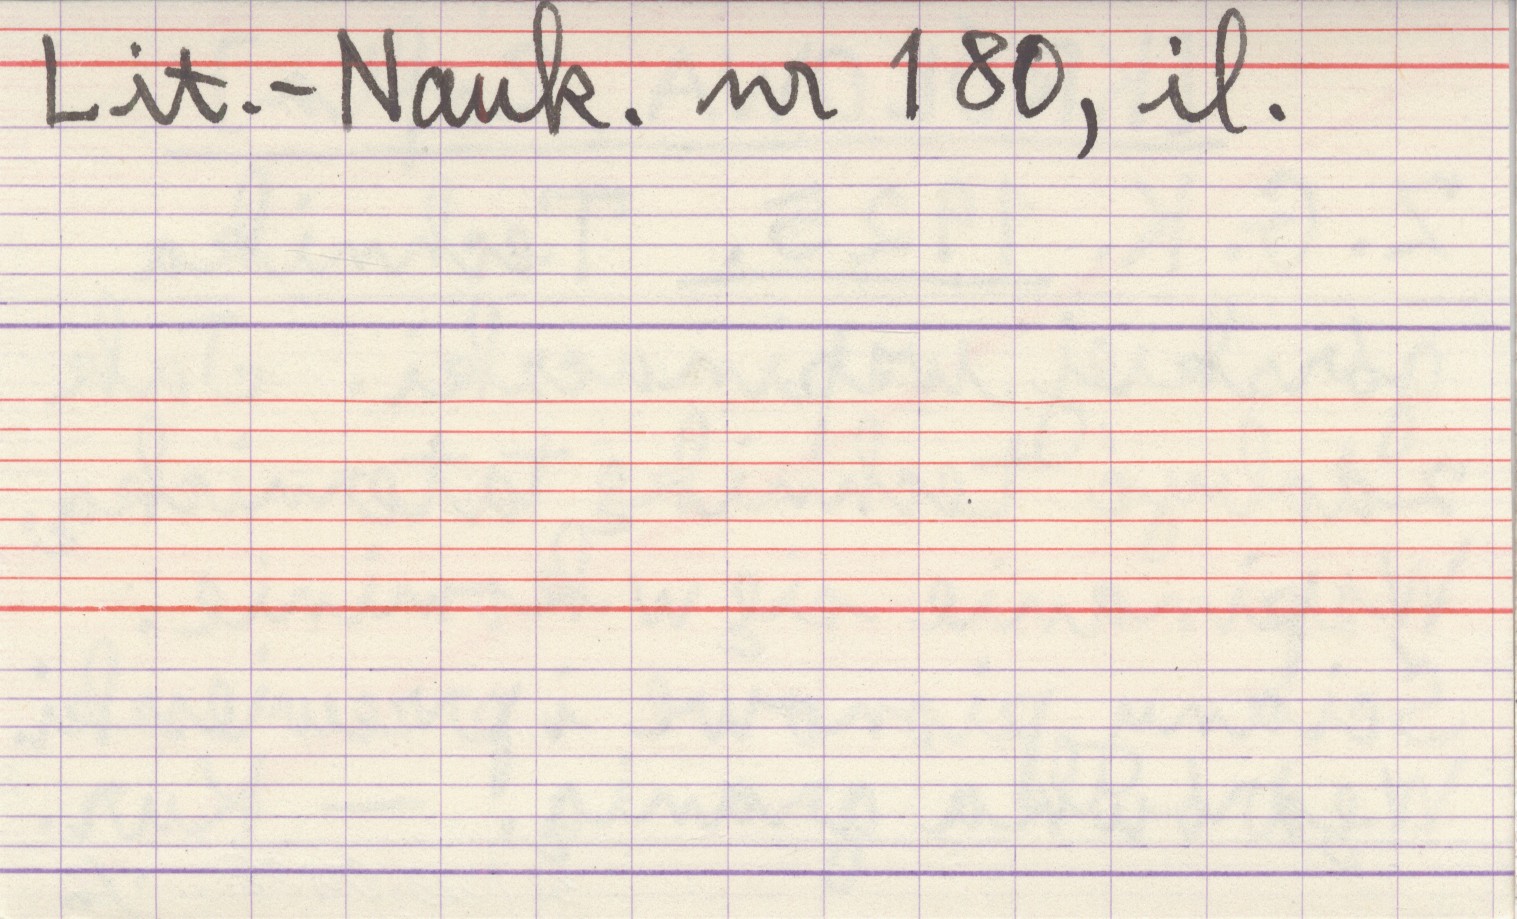 Lit.-Nauk. nr 180, il.